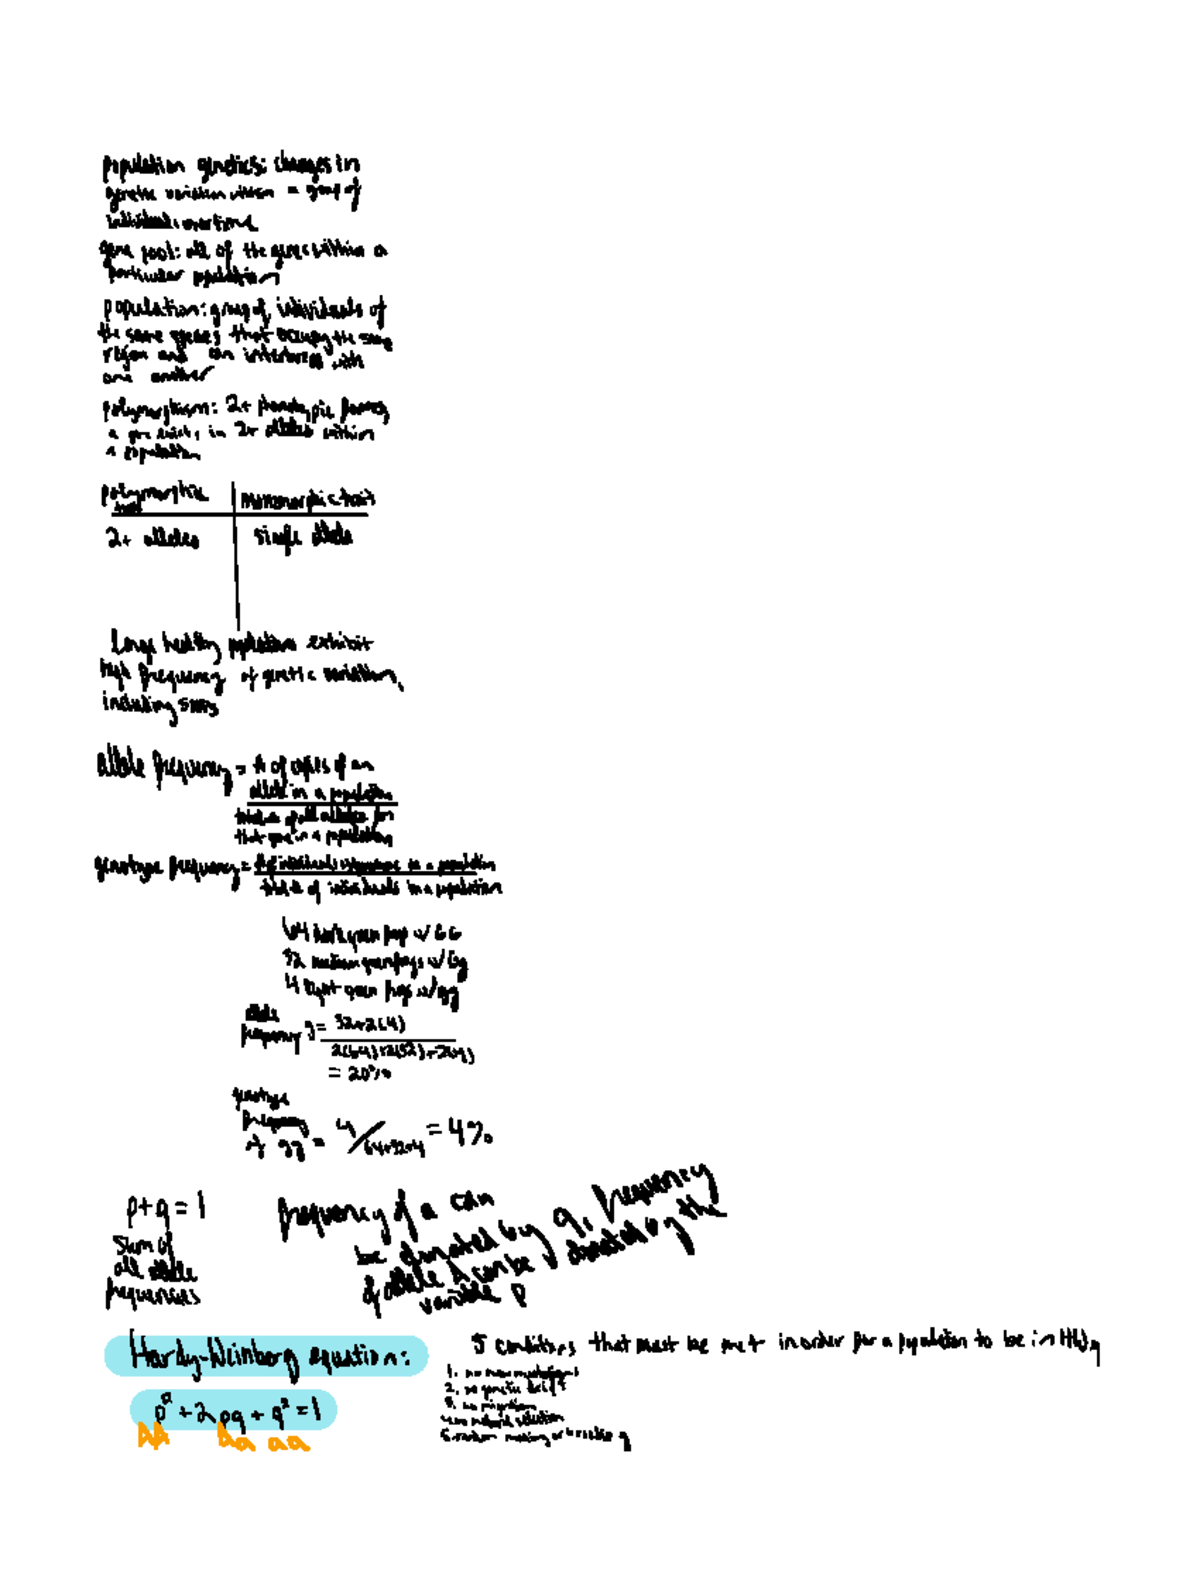 population genetics: changes in
genetic variation within a group of
individuals over time
gene pool: all of the genes within a
particular population
population: group of individuals of
the same species that occupy the same
region and can interbreed with
one another
polymorphism: 2+ phenotypic forms,
a gene exists in 2+ alleles within
a population
polymorphic trait | monomorphic trait
2+ alleles | single allele
Large healthy populations exhibit
high frequency of genetic variation,
including SNPs
allele frequency = # of copies of an
allele in a population
total # of all alleles for
that gene in a population
genotype frequency = # of individuals in a population
total # of individuals in a population
64 dark green frogs w/ GG
32 medium green frogs w/ Gg
4 light green frogs w/ gg
allele
frequency g = 32+2(4)
2(64)+2(32)+2(4)
= 20%
genotype
frequency
of gg = 4/64+32+4 = 4%
p+q = 1
sum of
all allele
frequencies
frequency of a can
be denoted by q, frequency
of allele A can be denoted by the
variable p
Hardy-Weinberg equation:
p² + 2pq + q² = 1
AA Aa aa
5 conditions that must be met in order for a population to be in HWeq
1. no new mutations
2. no genetic drift
3. no migration
4. no natural selection
5. random mating